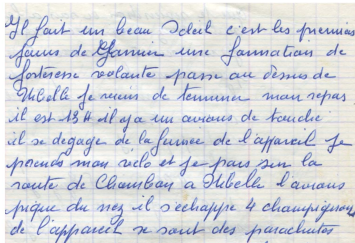 Il fait un beau Soleil c'est les premiers
jours de Janvier une formation de
forteresse volante passe au dessus de
Vibelle Je viens de terminer mon repas
il est 13 H il y a un avions de touché
il se degage de la fumée de l'appareil Je
prends mon velo et Je pars sur la
route de Chambon a Vibelle l'avions
pique du nez il s'echappe 4 champignons
de l'appareil se sont des parachutes